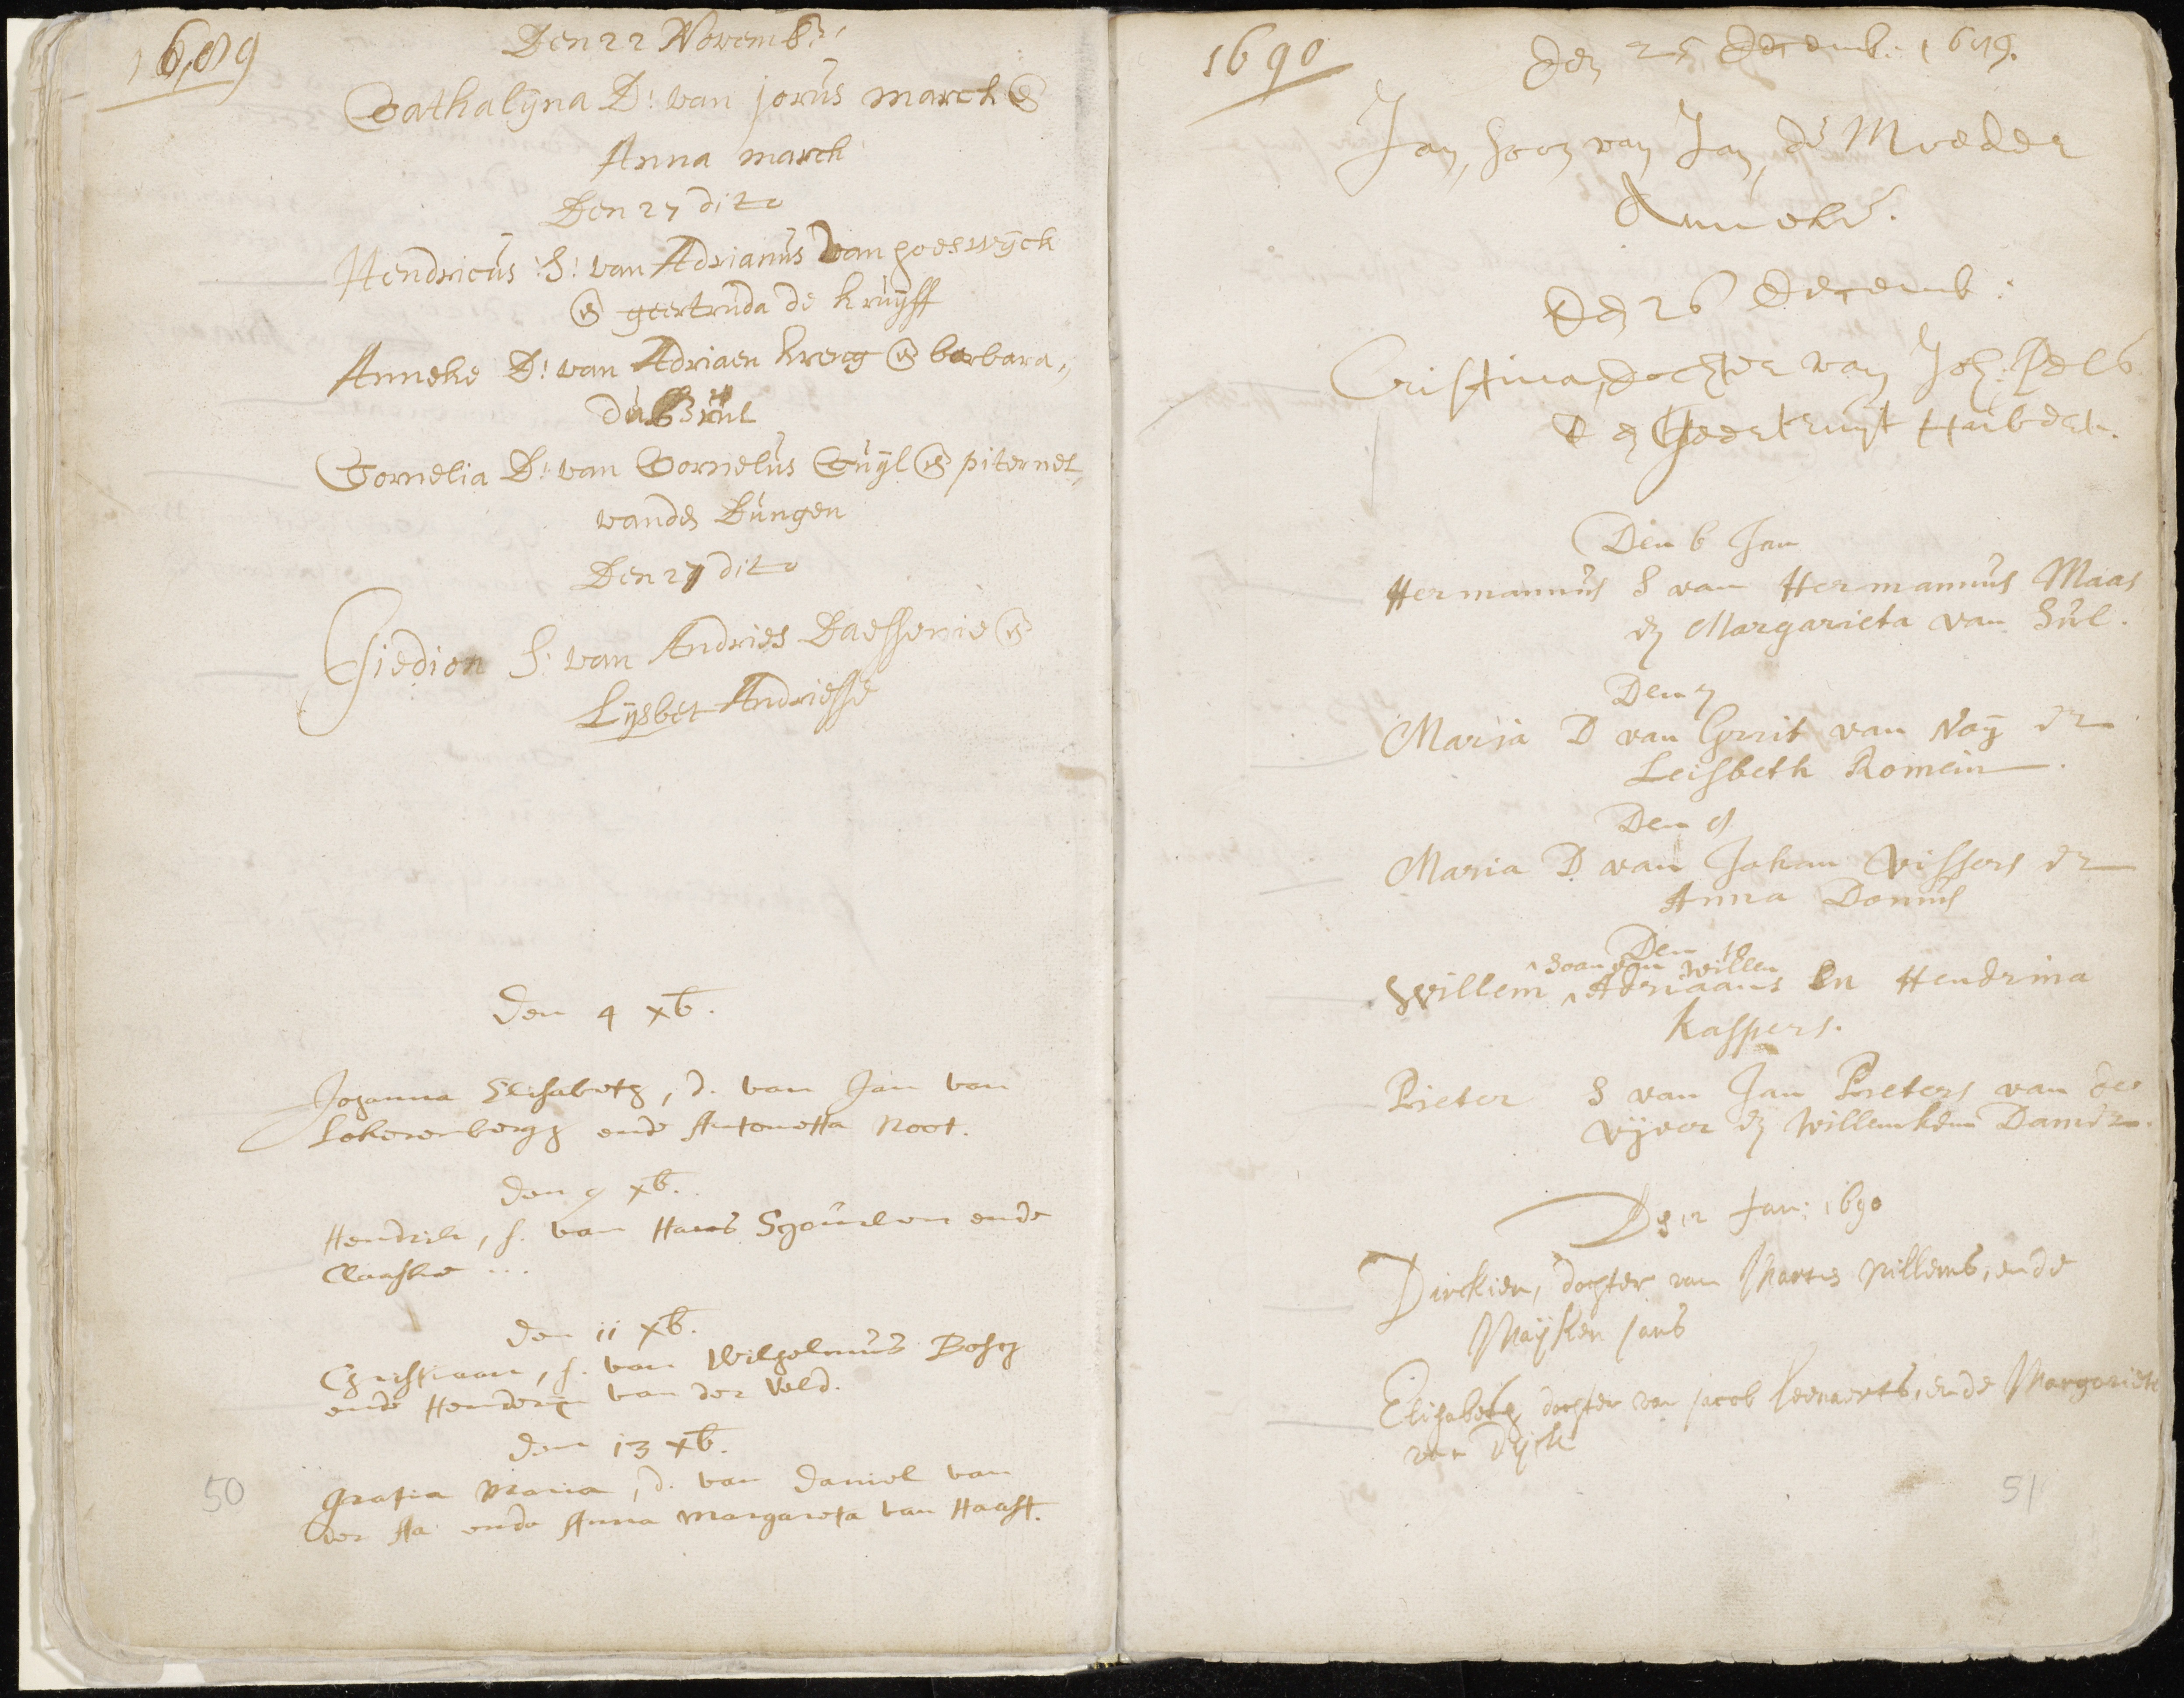 1689
Den 22 Novemb:
Cathalÿna D: van jorus march &
Anna march
Den 27 dito
Hendricus S: van Adrianus van hoeswÿck
& geertruda de Kruÿff
Anneke D: van Adriaen Kreng & barbara
Cornelia D: van Cornelus Cuÿl & piternel
vander Bungen
Den 27 dito
Giedion S: van Andries Daessenie &
Lÿsbet Andriesse
den 4 xb.
Johanna Elisabeth, d. van Jan van
Lokerenbergh ende Antonetta Noot.
den 9 xb.
Hendrik, s. van Hans ende
Claaske ...
den 11 xb.
Christiaan, s. van Wilhelmus Bosch
ende van der Veld.
den 13 xb.
Gratia Maria, d. van Daniel van
der Aa ende Anna Margareta van Haast.
50
1690
Den 25 Decemb. 1689.
Jan, soon van Jan, de Moeder
Anneke.
Den 26 Decemb:
Cristina, dochter van Joh. Pels
en Geertruijt Huibert.
Den 6 Jan
Hermannus S van Hermannus Maas
en Margarieta van Sul.
Den 7
Maria D van Gerrit van Noÿ en
Leisbeth Romein.
Den 9
Maria D van Johan Vissers en
Anna Donius
Den 10
soon van Willem
Willem Adriaans En Hendrina
Kaspers.
Pieter S van Jan Pieters van de
Vÿver en Willemken Damen.
Den 12 Jan: 1690
Dirckien, dochter van Marten Willems, ende
Maÿken Jans
Elisabeth dochter van Jacob Leenaerts, ende Margariete
van Dÿck
51